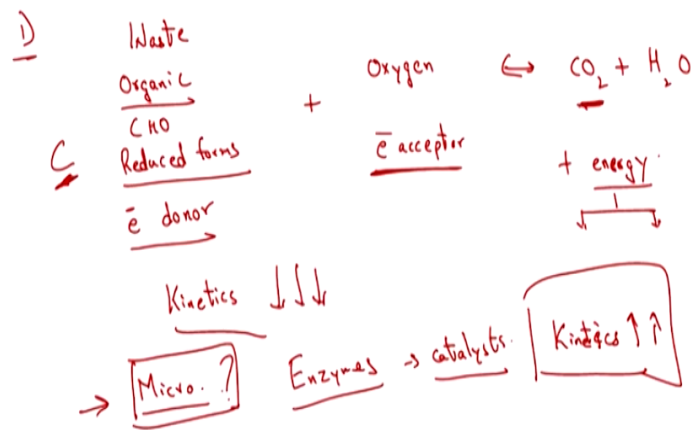 1)
Waste
Organic + Oxygen ↔ CO₂ + H₂O
CHO
C Reduced forms e⁻ acceptor + energy.
e⁻ donor
Kinetics ↓↓↓
→ Micro. ? Enzymes → catalysts. Kinetics ↑↑